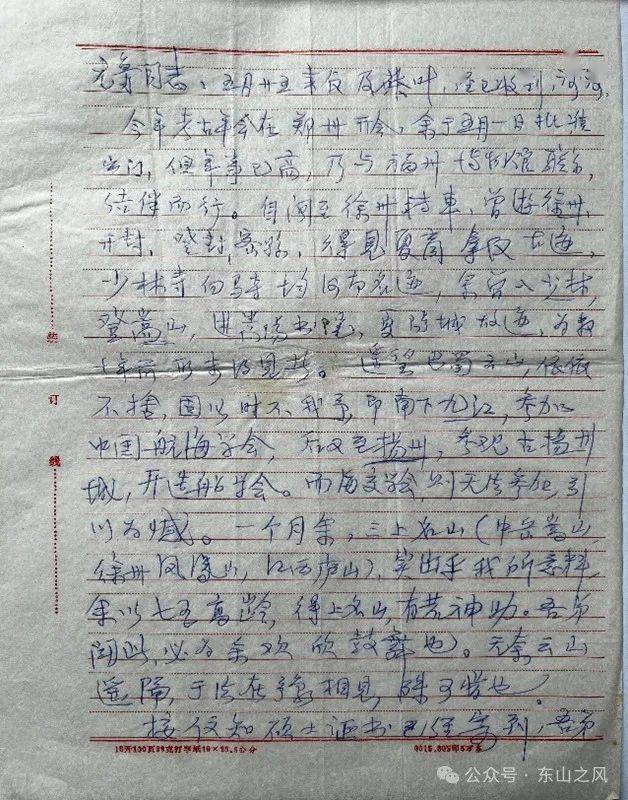 元 同志：五月廿五来信及 叶，已收到，谢谢。
今年考古年会在郑州开会，余于五月一日批准
出门，但年事已高，乃与福州博物馆
结伴而行。自闽至徐州转车，曾游徐州、
开封、登封、，得见夏商 古迹，
少林寺白马寺均 名迹，余曾入少林，
登嵩山，进嵩阳书院，夏 城故迹，为数
十年前所未得见者。遥望巴蜀云山，依依
不捨，因以时不我予，即南下九江，参加
中国航海学会，后又至扬州，参观古扬州
城，开造船学会。而海交学会，则无法参加，引
以为憾。一个月余，三上名山（中岳嵩山，
徐州凤凰山，江西庐山），实出乎我所意料，
余以七五高龄，得上名山，有若神助。吾弟
闻此，必为余欢欣鼓舞也。无奈云山
遥隔，于法在 相见，殊可 也。
接信知硕士证书已经 到，吾弟
装
订
线
16开100页28克打字纸19×26.5公分
0015.805
公众号·东山之风